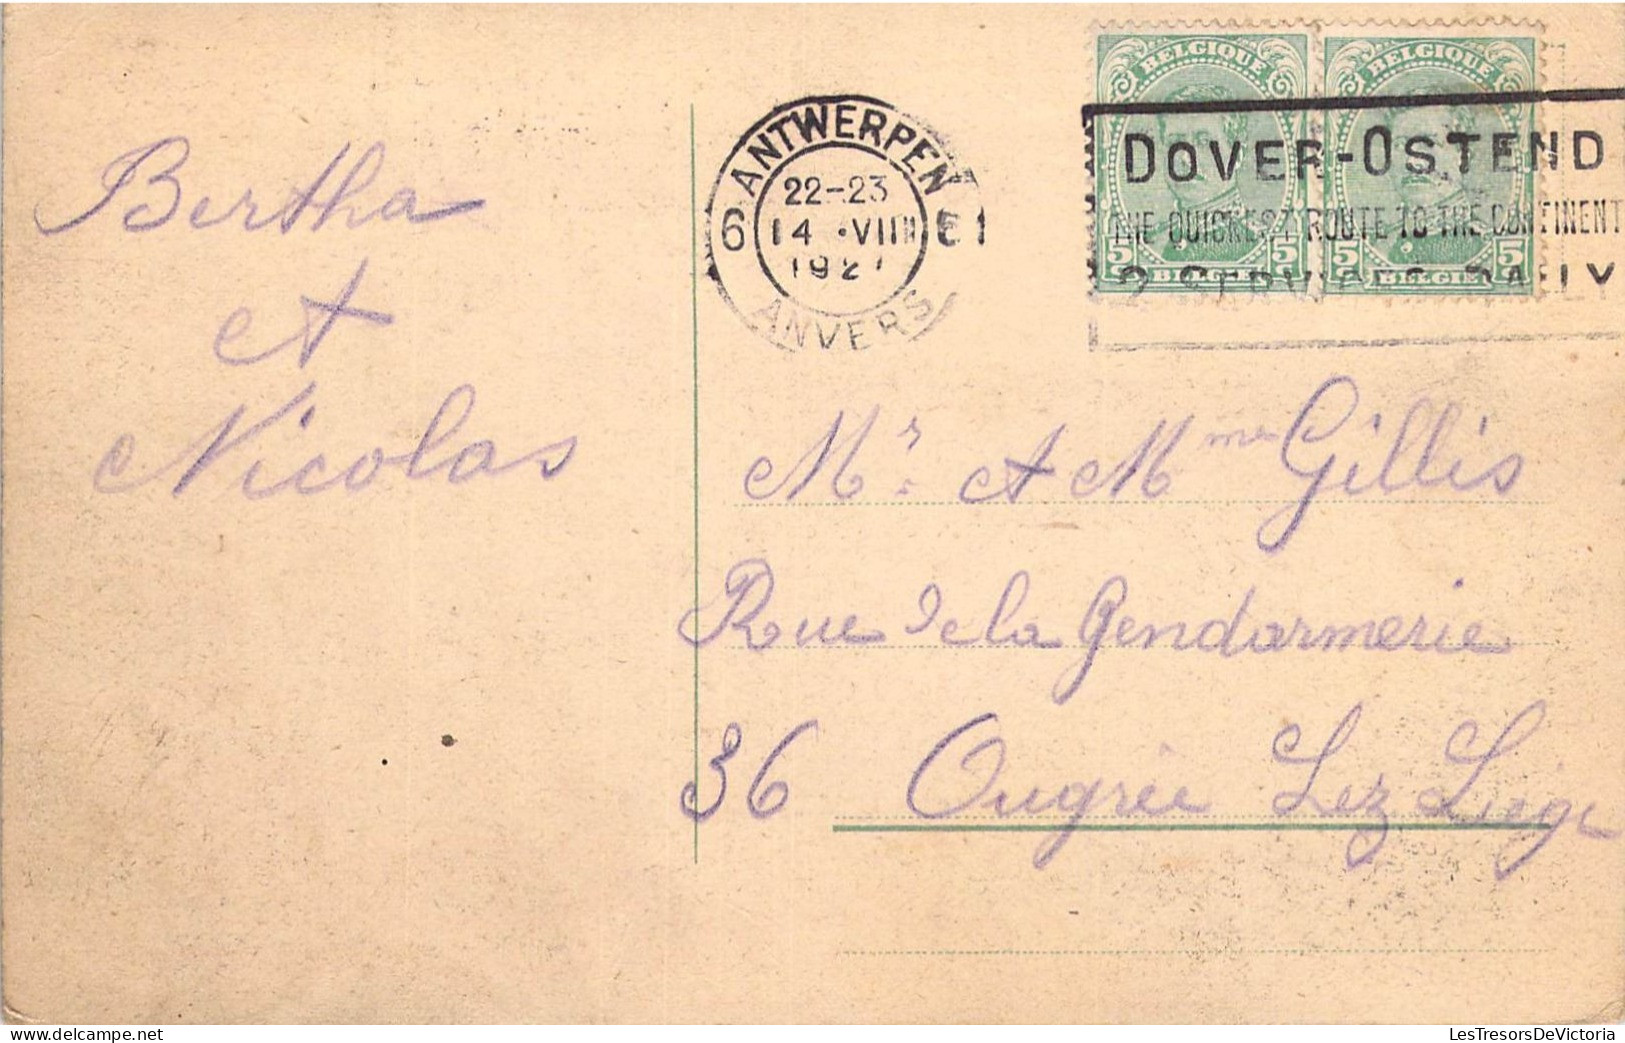 Bertha
et
Nicolas
ANTWERPEN
22-23
6 14 •VIII 1
192
ANVERS
BELGIQUE BELGIQUE
DOVER-OSTEND
THE QUICKEST ROUTE TO THE CONTINENT
5 5 5 5
BELGIË BELGIË
2 SERVICES DAILY
Mr. et Mme Gillis
Rue de la Gendarmerie
36 Ougrée Lez Liège
LesTresorsDeVictoria